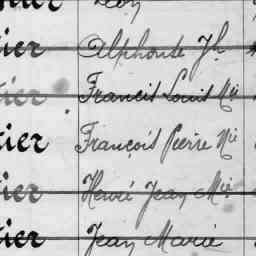 Léon
tier Alphonse Jh
tier Francis Louis Mie
tier François Pierre Mie
tier Henri Jean Mie
tier Jean Marie